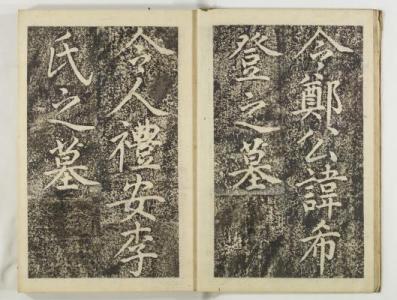 令鄭公諱希
登之墓
令人禮安李
氏之墓